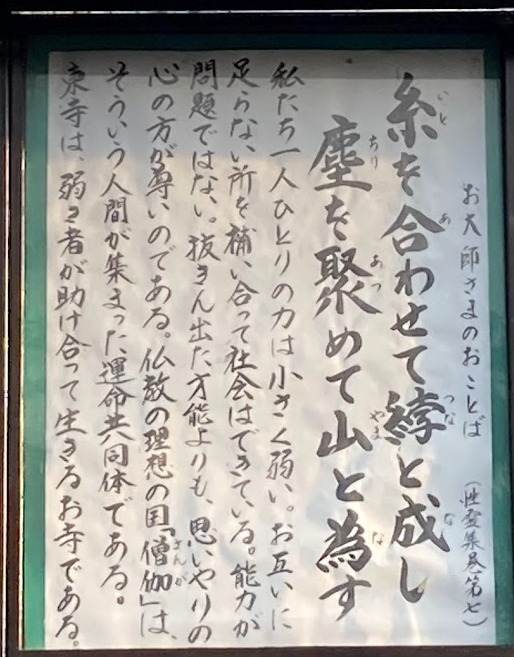 お大師さまのおことば
(性霊集巻第七)
糸を合わせて綍と成し
塵を聚めて山と為す
私たち一人ひとりの力は小さく弱い。お互いに
足らない所を補い合って社会はできている。能力が
問題ではない。抜きん出た才能よりも、思いやりの
心の方が尊いのである。仏教の理想の国「僧伽」は、
そういう人間が集まった運命共同体である。
東寺は、弱き者が助け合って生きるお寺である。